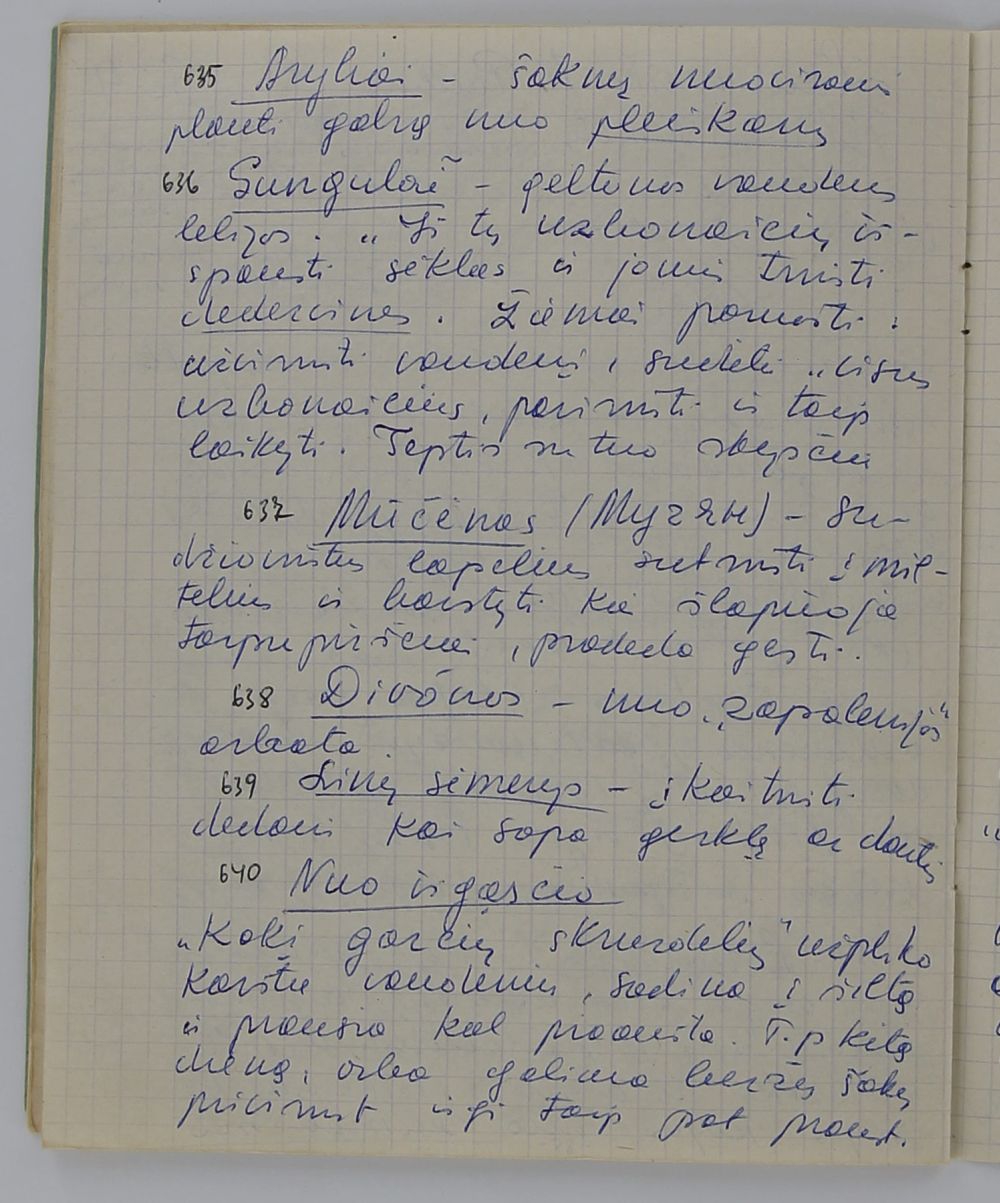 635 Aryliai - šaknų nuoviram
plauti galvą nuo pleiskanų
636 Sungulaĩ - geltonos vandens
lelijos. „Iš tų uzbonaičių iš-
spausti sėklas ir jomis trinti
dedervines. Žiemai paruošti:
užvirinti vandenį, sudėti „visus
uzbonaičius, pavirinti ir taip
laikyti. Teptis su tuo skysčiu
637 Mūčėnas (Мучян) - su-
džiovintus lapelius sutrinti į mil-
telius ir barstyti kai šlapiuoja
tarpupirščiai, pradeda gesti.
638 Divõnos - nuo „zapalenijos"
arbata.
639 Linų sėmenys - įkaitinti
dedami kai sopa gerklę ar dantis
640 Nuo išgąsčio
„Kokį gorčių skruzdėlių" užpliko
karštu vandeniu, sodina į šiltą
ir prausia kol praaušta. T.p kitą
dieną, arba galima beržų šakų
privirint irgi taip pat praust.